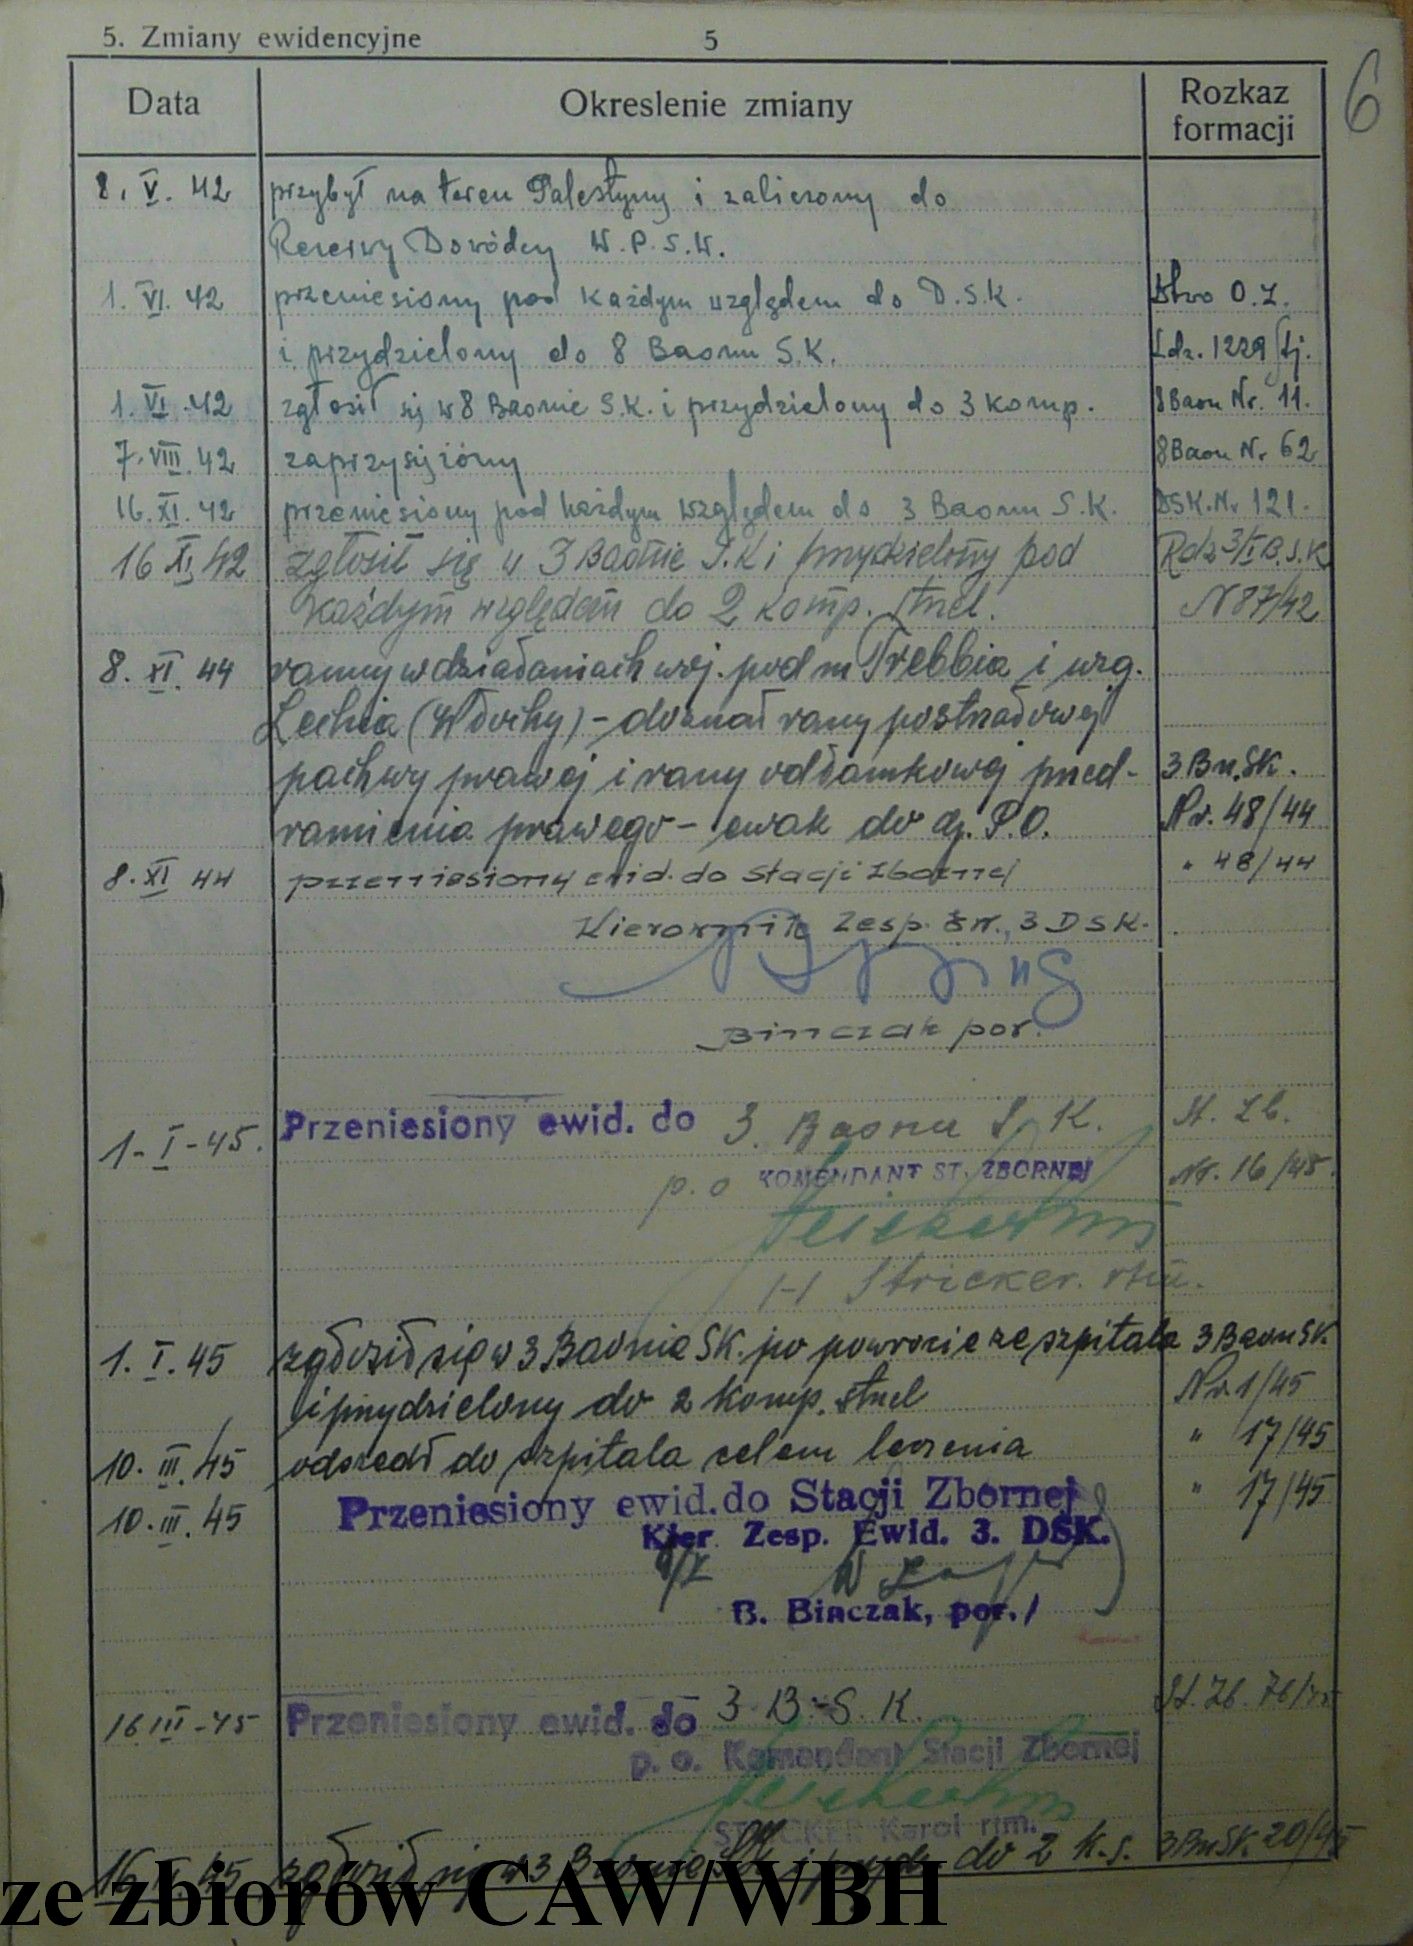 5. Zmiany ewidencyjne 5
6
Data Okreslenie zmiany Rozkaz formacji
8. V. 42 przybył na teren Palestyny i zaliczony do
Rezerwy Dowódcy W.P.S.W.
1. VI. 42 przeniesiony pod każdym względem do D.S.K.
i przydzielony do 8 Baonu S.K. Ldz. 1229/tj.
1. VI. 42 zgłosił się w 8 Baonie S.K. i przydzielony do 3 komp. 8 Baon Nr. 11.
7. VIII. 42 zaprzysiężony 8 Baon Nr 62
16. XI. 42 przeniesiony pod każdym względem do 3 Baonu S.K. DSK. Nr 121.
16 XI 42 zgłosił się w 3 Baonie S.K i przydzielony pod
każdym względem do 2 komp. strzel. N 87/42
8. XI. 44 ranny w działaniach woj. pod m Trebbia i wzg.
(Włochy) - doznał rany postrzałowej
pachwy prawej i rany odłamkowej przed- 3 Bn. SK.
ramienia prawego - ewak do P.O. Nr. 48/44
8. XI 44 przeniesiony ewid. do Stacji Zbornej " 48/44
Kierownik Zesp. Ew., 3 DSK.
Binczak por.
1-I-45. Przeniesiony ewid. do 3. Baonu S. K. St. Zb.
p.o KOMENDANT ST. ZBORNEJ Nr. 16/45.
/-/ Stricker. rtm.
1. I. 45 zgłosił się w 3 Baonie SK. po powrocie ze szpitala 3 Baon SK
i przydzielony do 2 komp. strzel Nr 1/45
10. III. 45 odszedł do szpitala celem leczenia " 17/45
10. III. 45 Przeniesiony ewid. do Stacji Zbornej " 17/45
Kier Zesp. Ewid. 3. DSK.
B. Binczak, por. /
16 III-45 Przeniesiony ewid. do 3. B-S. K. St. Zb. 76/45
p. o. Komendant Stacji Zbornej
STRICKER Karol rtm.
45 zgłosił się w 3 Baonie SK i przydz. do 2 k.s. 3 Bn SK. 20/45
ze zbiorów CAW/WBH